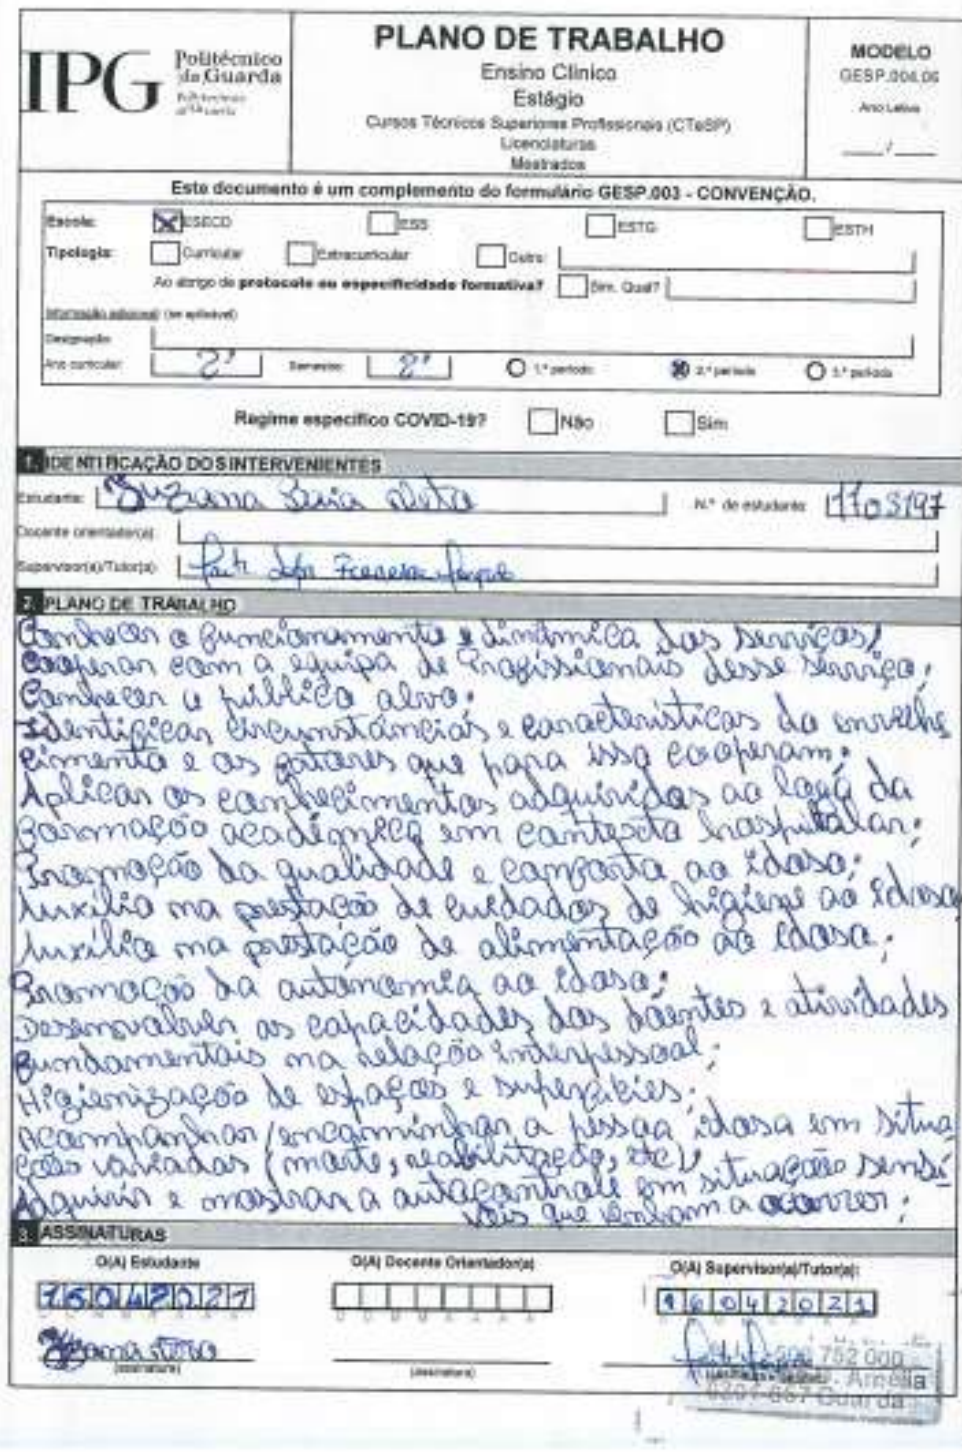 IPG
Politécnico
da Guarda
Polytechnic
of Guarda
PLANO DE TRABALHO
Ensino Clínico
Estágio
Cursos Técnicos Superiores Profissionais (CTeSP)
Licenciaturas
Mestrados
MODELO
GESP.004.06
Ano Letivo
___/___
Este documento é um complemento do formulário GESP.003 - CONVENÇÃO.
Escola: ESECD ESS ESTG ESTH
Tipologia: Curricular Extracurricular Outra:
Ao abrigo de protocolo ou especificidade formativa? Sim. Qual?
Informação adicional (se aplicável)
Designação:
Ano curricular: 2º Semestre: 2º 1.º período 2.º período 3.º período
Regime específico COVID-19? Não Sim
1. IDENTIFICAÇÃO DOS INTERVENIENTES
Estudante: Suzana N.º de estudante:
Docente orientador(a):
Supervisor(a)/Tutor(a):
2. PLANO DE TRABALHO
Conhecer o funcionamento e dinâmica dos serviços;
Cooperar com a equipa de Profissionais desse serviço;
Conhecer o público alvo;
Identificar circunstâncias e características do envelhe
cimento e os fatores que para isso cooperam;
Aplicar os conhecimentos adquiridos ao logo da
formação académica em contexto hospitalar;
Promoção da qualidade e conforto ao idoso;
Auxílio na prestação de cuidados de higiene ao idoso
Auxílio na prestação de alimentação ao idoso;
Promoção da autonomia ao idoso;
Desenvolver as capacidades dos doentes e atividades
fundamentais na relação interpessoal;
Higienização de espaços e superfícies;
Acompanhar/encaminhar a pessoa idosa em situa
ções variadas (morte, reabilitação, etc);
Adquirir e mostrar a autocontrole em situações sensí
veis que venham a ocorrer;
3. ASSINATURAS
O(A) Estudante O(A) Docente Orientador(a) O(A) Supervisor(a)/Tutor(a):
16042021 16042021
(assinatura) (assinatura)
752 000
Amélia
Guarda